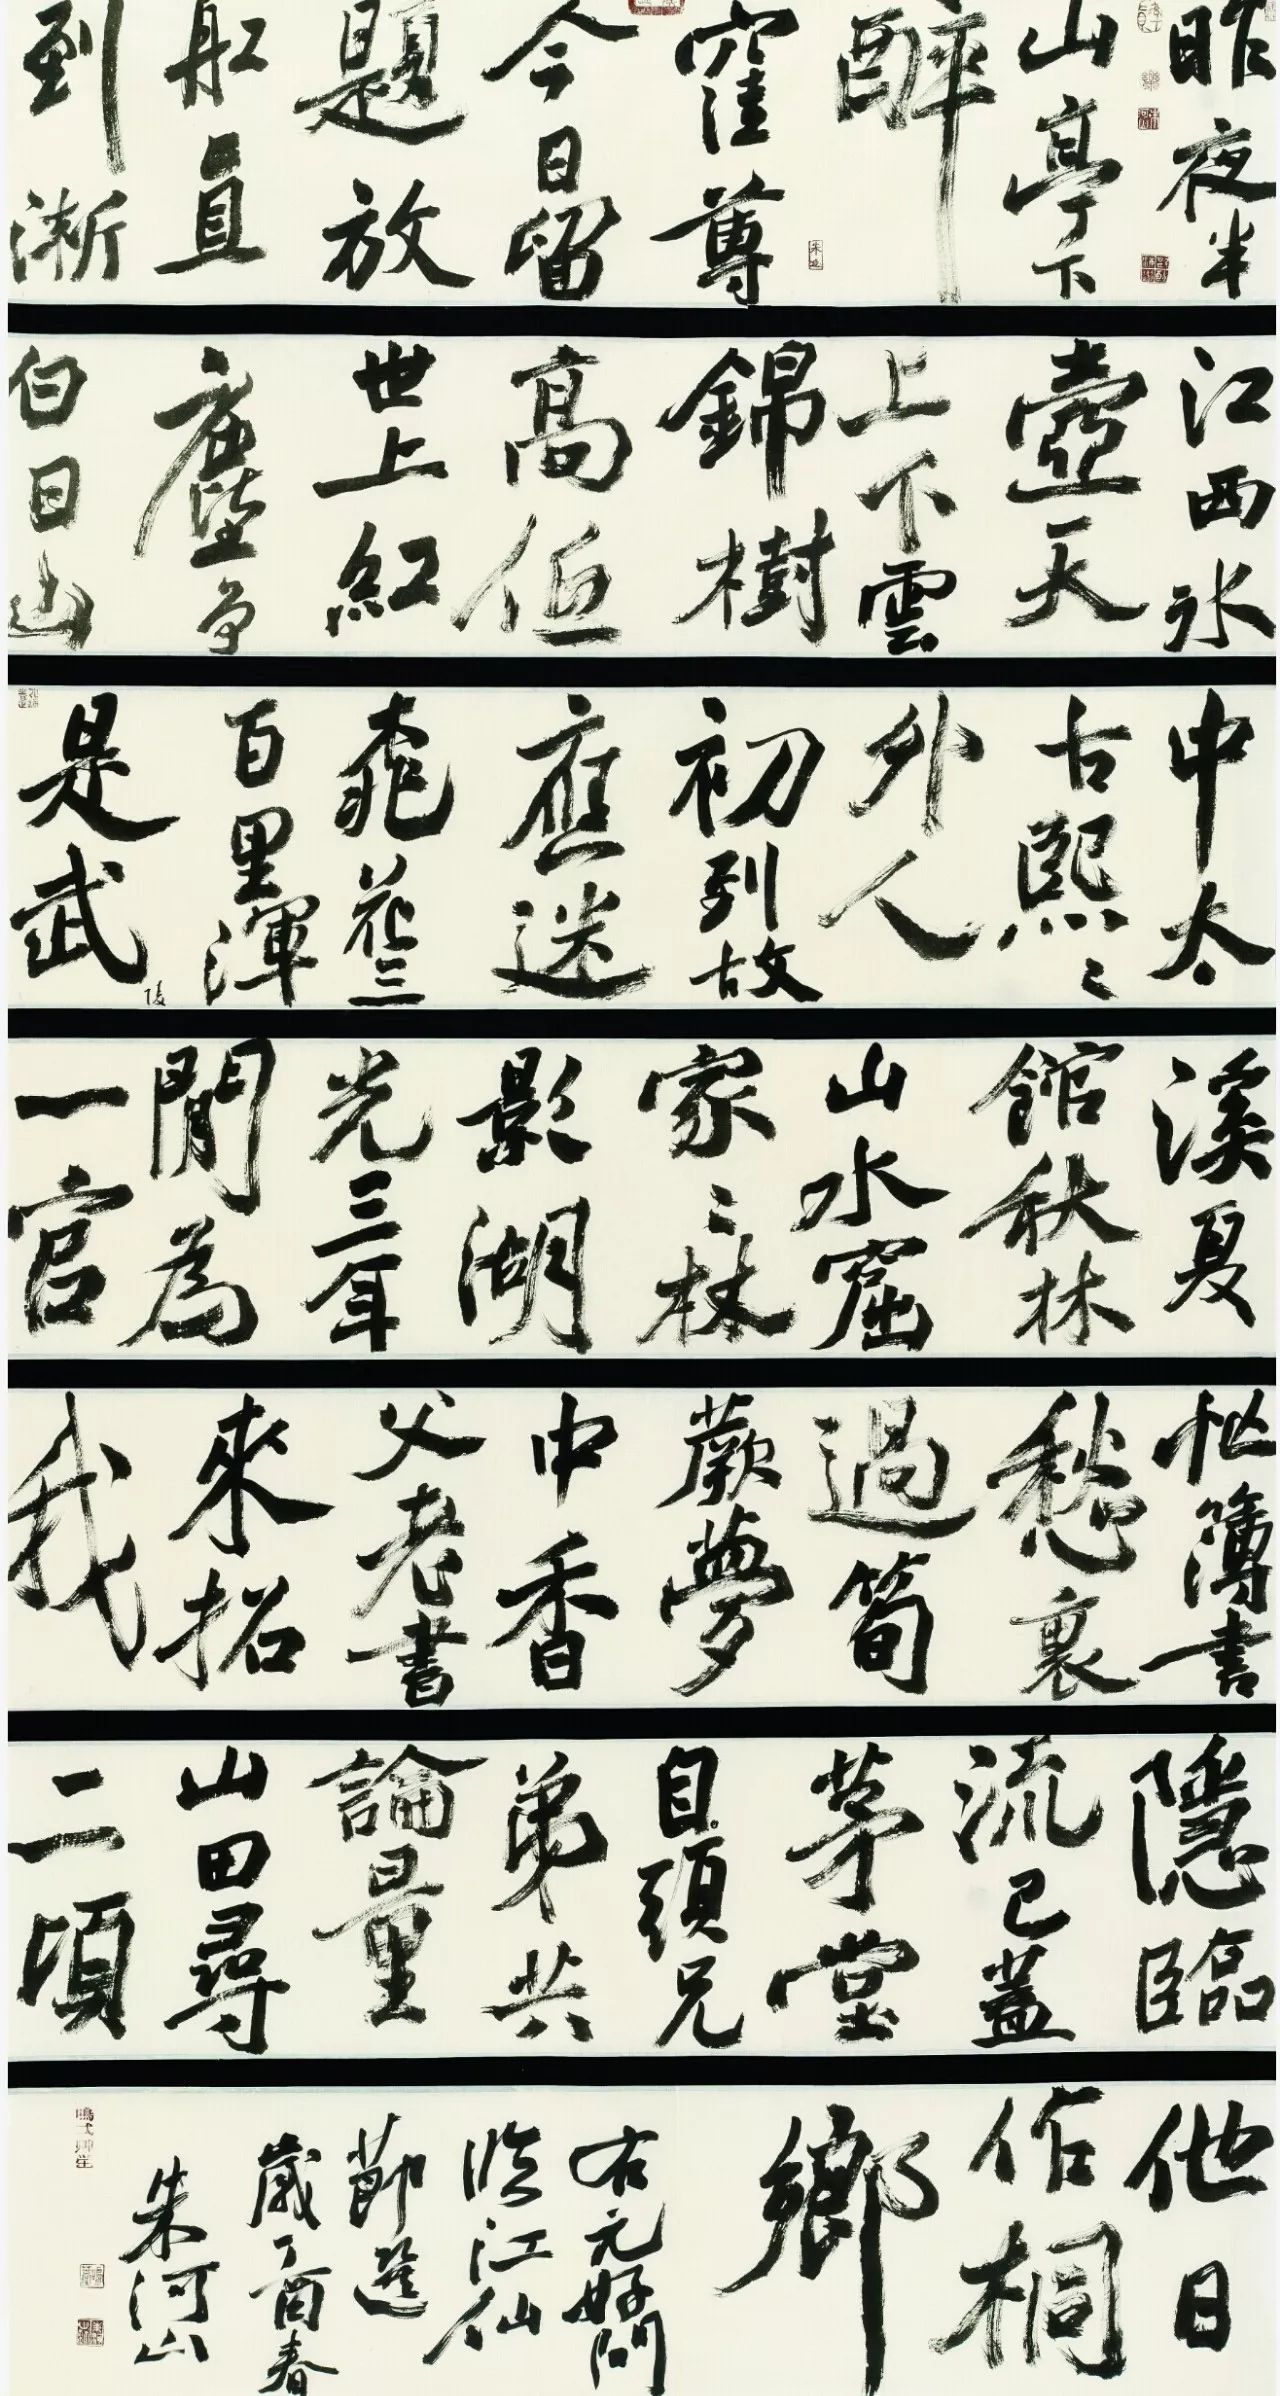 昨夜半
山亭下
醉
窪尊
今日留
題放
船直
到淅
江西水
壺天
上下雲
錦樹
高低
世上紅
塵争
白日山
中太
古熙〻
外人
初到故
應迷
桃花三
百里渾
是武陵
溪夏
館秋林
山水窟
家〻林
影湖
光三年
閒為
一官
忙簿書
愁裏
過筍
蕨夢
中香
父老書
來招
我
隱臨
流已蓋
茅堂
白頭兄
弟共
論量
山田尋
二頃
他日
作桐
鄉
右元好問
臨江仙
節選
歲丁酉春
朱河山